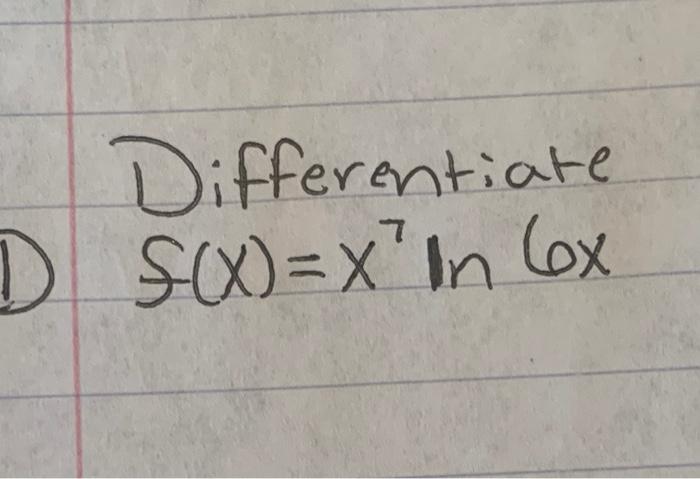 Differentiate
D f(x) = x⁷ ln 6x